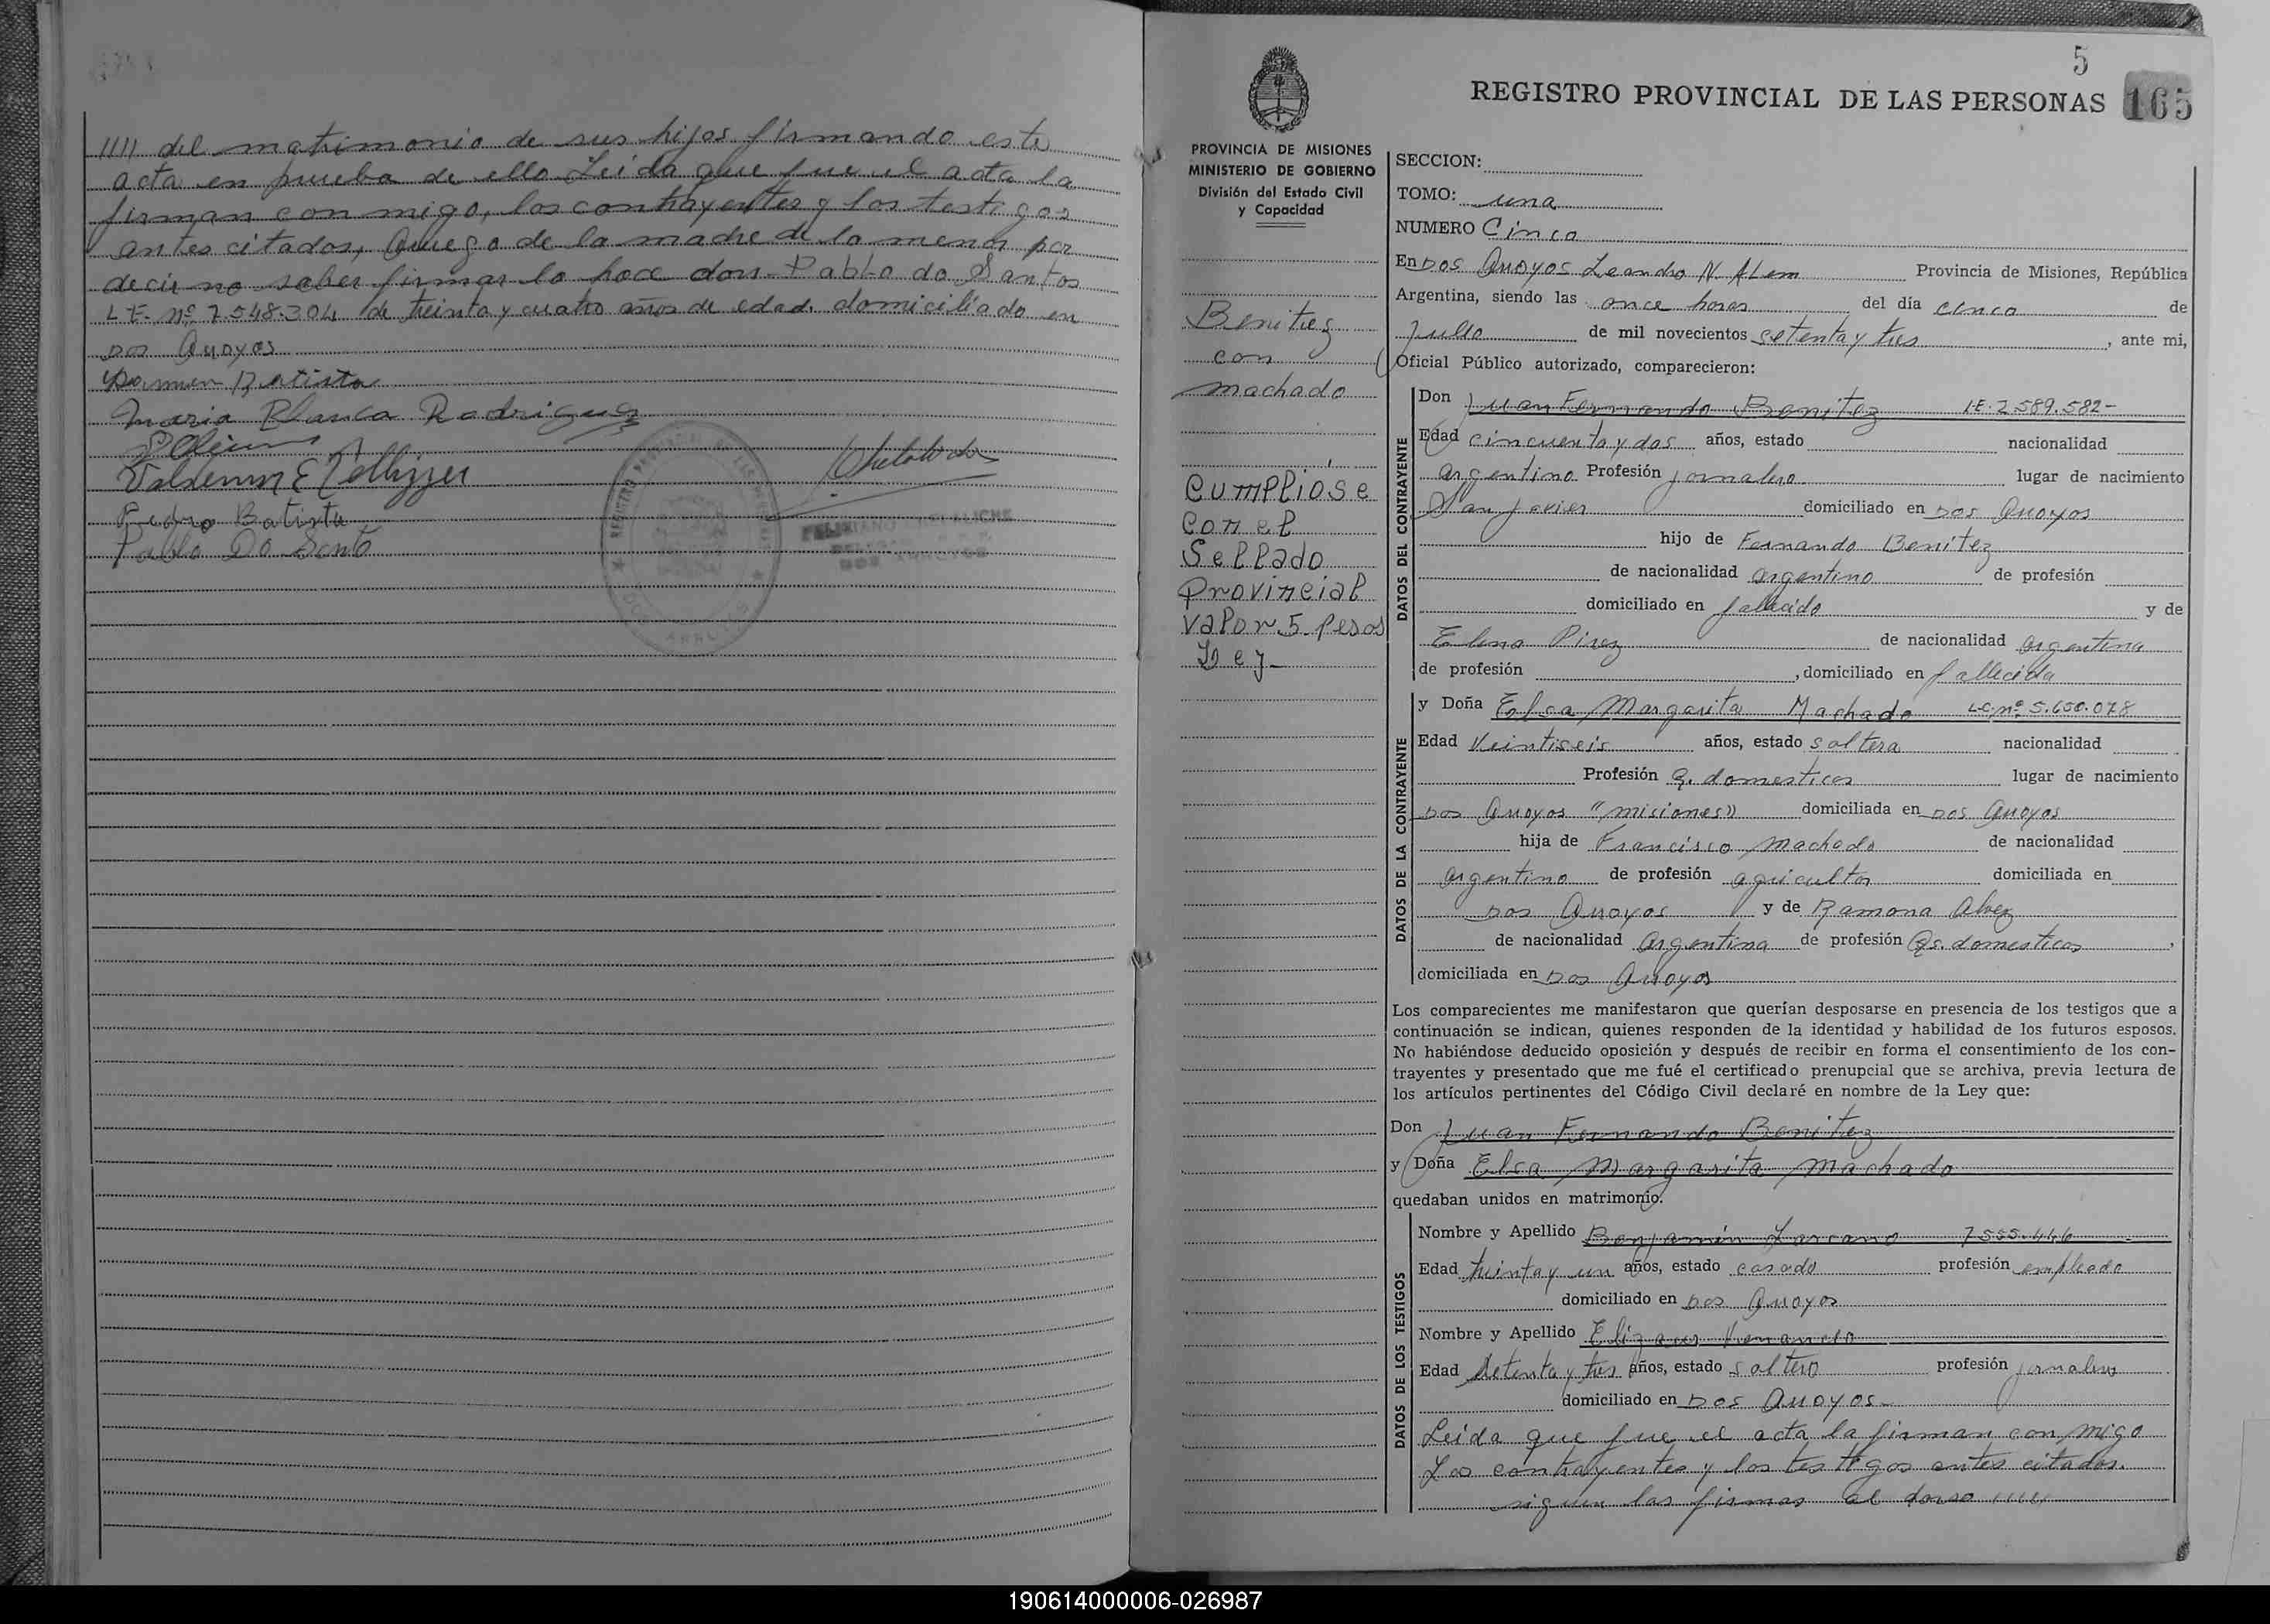 //// del matrimonio de sus hijos firmando esta
acta en prueba de ello Leida que fue el acta la
firman con migo, los contrayentes y los testigos
antes citados, Aruego de la madre de la menor por
decir no saber firmar lo hace don Pablo do Santos
L.E. Nº 7.548.304 de treinta y cuatro años de edad. domiciliado en
Dos Arroyos
Batista
Maria Blanca Rodriguez
Pedro Batista
Pablo Do Santo
5
REGISTRO PROVINCIAL DE LAS PERSONAS 165
PROVINCIA DE MISIONES
MINISTERIO DE GOBIERNO
División del Estado Civil
y Capacidad
Benitez
con
Machado
Cumpliose
con el
Sellado
Provincial
valor 5 pesos
Ley-
SECCION:
TOMO: una
NUMERO Cinco
En Dos Arroyos Leandro N. Alem Provincia de Misiones, República
Argentina, siendo las once horas del día cinco de
Julio de mil novecientos setenta y tres, ante mi,
Oficial Público autorizado, comparecieron:
DATOS DEL CONTRAYENTE
Don Juan Fernando Benitez L.E. 2.589.582-
Edad cincuenta y dos años, estado nacionalidad
argentino Profesión jornalero lugar de nacimiento
San Javier domiciliado en Dos Arroyos
hijo de Fernando Benitez
de nacionalidad argentino de profesión
domiciliado en fallecido y de
Elena Pirez de nacionalidad argentina
de profesión , domiciliado en fallecida
DATOS DE LA CONTRAYENTE
y Doña Elsa Margarita Machado L.C. nº 5.650.078
Edad Veintiseis años, estado soltera nacionalidad
Profesión Q. domesticos lugar de nacimiento
Dos Arroyos "misiones" domiciliada en Dos Arroyos
hija de Francisco Machado de nacionalidad
argentino de profesión agricultor domiciliada en
Dos Arroyos y de Ramona Alvez
de nacionalidad argentina de profesión Qs. domesticos,
domiciliada en Dos Arroyos
Los comparecientes me manifestaron que querían desposarse en presencia de los testigos que a
continuación se indican, quienes responden de la identidad y habilidad de los futuros esposos.
No habiéndose deducido oposición y después de recibir en forma el consentimiento de los con-
trayentes y presentado que me fué el certificado prenupcial que se archiva, previa lectura de
los artículos pertinentes del Código Civil declaré en nombre de la Ley que:
Don Juan Fernando Benitez
y Doña Elsa Margarita Machado
quedaban unidos en matrimonio.
DATOS DE LOS TESTIGOS
Nombre y Apellido Benjamin Lorcano 7555.446
Edad treinta y un años, estado casado profesión empleado
domiciliado en Dos Arroyos
Nombre y Apellido Venancio
Edad setenta y tres años, estado soltero profesión jornalero
domiciliado en Dos Arroyos-
Leida que fue el acta la firman con migo
Los contrayentes y los testigos antes citados.
siguen las firmas al dorso ////
190614000006-026987